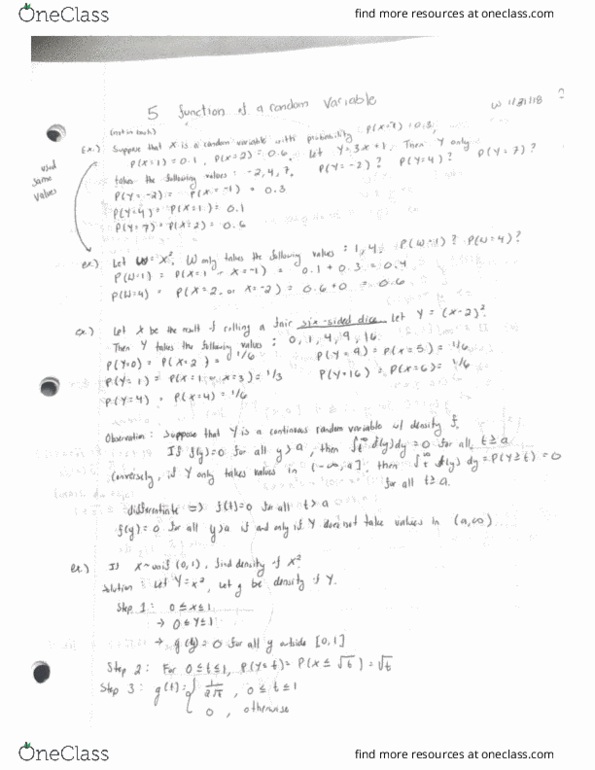 OneClass
find more resources at oneclass.com
5 function of a random variable
W 1/31/18
(not in book)
Ex.) Suppose that X is a random variable with probability P(X=-1)=0.3,
P(X=1)=0.1, P(X=2)=0.6. Let Y=3X+1, Then Y only
takes the following values: -2,4,7. P(Y=-2)? P(Y=4)? P(Y=7)?
P(Y=-2) = P(X=-1) = 0.3
P(Y=4) = P(X=1) = 0.1
P(Y=7) = P(X=2) = 0.6
used
same
values
ex.) Let W=X². W only takes the following values: 1,4. P(W=1)? P(W=4)?
P(W=1) = P(X=1 X=-1) = 0.1+0.3=0.4
P(W=4) = P(X=2 or X=-2) = 0.6+0 = 0.6
ex.) Let X be the result of rolling a fair six-sided dice Let Y=(X-2)².
Then Y takes the following values: 0,1,4,9,16.
P(Y=0) = P(X=2) = 1/6 P(Y=9)=P(X=5)=1/6
P(Y=1) = P(X=1 or X=3)=1/3 P(Y=16)=P(X=6)=1/6
P(Y=4) = P(X=4)=1/6
Observation: Suppose that Y is a continuous random variable w/ density f.
If f(y)=0 for all y>a, then ∫t^∞ f(y)dy=0 for all t≥a
Conversely, if Y only takes values in (-∞,a], then ∫t^∞ f(y) dy=P(Y≥t)=0
for all t≥a.
differentiate => f(t)=0 for all t>a
f(y)=0 for all y>a if and only if Y does not take values in (a,∞)
ex.) If X~unif(0,1), find density of X²
Solution: Let Y=X², Let g be density of Y.
Step 1: 0≤X≤1
→ 0≤Y≤1
→ g(y)=0 for all y outside [0,1]
Step 2: For 0≤t≤1, P(Y≤t)=P(X≤√t)=√t
Step 3: g(t)={ 1/2√t, 0≤t≤1
0, otherwise
OneClass
find more resources at oneclass.com